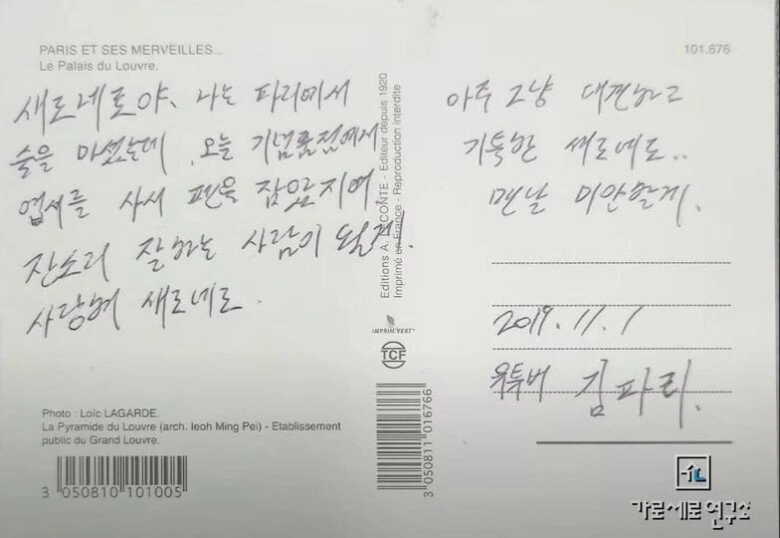 PARIS ET SES MERVEILLES...
Le Palais du Louvre.
새로네로야, 나는 파리에서
술을 마셨는데, 오늘 기념품점에서
엽서를 사서 펜을 잡았지여.
잔소리 잘하는 사람이 될게!
사랑해 새로네로.
Photo : Loïc LAGARDE.
La Pyramide du Louvre (arch. Ieoh Ming Pei) - Etablissement
public du Grand Louvre.
3 050810 101005
Editions A. LECONTE - Editeur depuis 1920
Imprimé en France - Reproduction interdite
IMPRIM'VERT
TCF
3 050811 016766
101.676
아주 그냥 대견하고
기특한 새로네로..
맨날 미안할게.
2019.11.1
유투버 김파리.
가로세로연구소